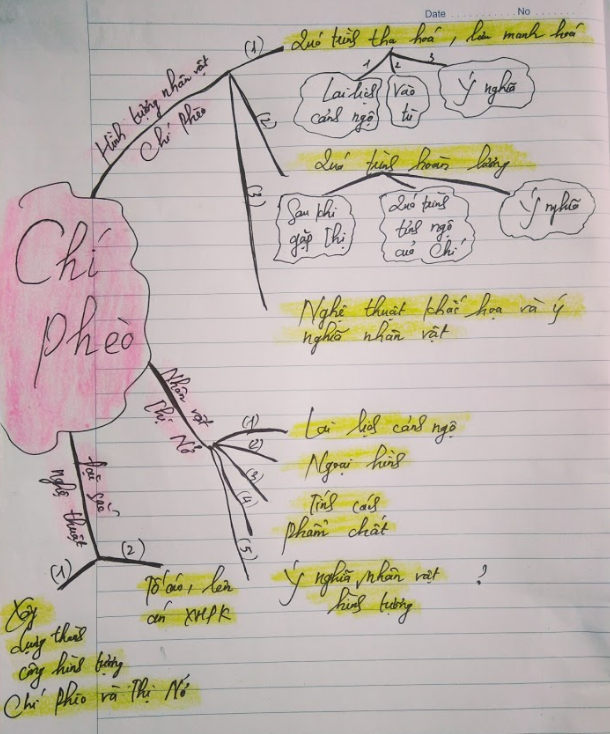 Date No
Chí
Phèo
Hình tượng nhân vật
Chí Phèo
(1)
Quá trình tha hoá, lưu manh hoá
1
2
3
Lai lịch
cảnh ngộ
Vào
tù
Ý nghĩa
(2)
Quá trình hoàn lương
Sau khi
gặp Thị
Quá trình
tỉnh ngộ
của Chí
Ý nghĩa
(3)
Nghệ thuật phác họa và ý
nghĩa nhân vật
Nhân vật
Thị Nở
(1)
Lai lịch cảnh ngộ
(2)
Ngoại hình
(3)
Tính cách
(4)
phẩm chất
(5)
Ý nghĩa nhân vật ?
hình tượng
Đặc sắc
nghệ thuật
(1)
Xây
dựng thành
công hình tượng
Chí Phèo và Thị Nở
(2)
Tố cáo, lên
án XHPK